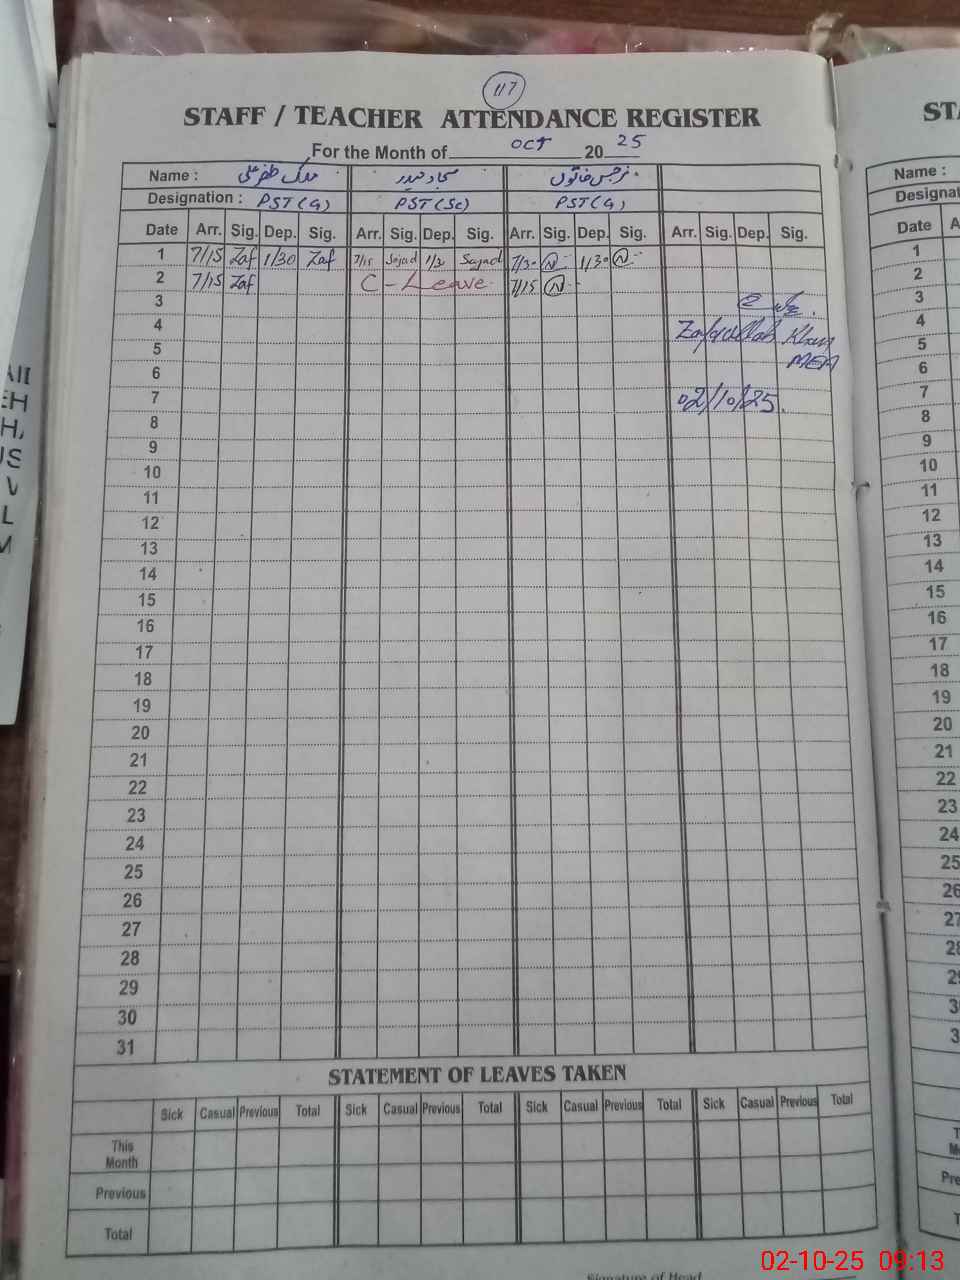 117
STAFF / TEACHER ATTENDANCE REGISTER
For the Month of OCT 2025
Name : ملک ظفر علی سجاد حیدر نرجس خاتون
Designation : PST(G) PST(Sc) PST(G)
Date Arr. Sig. Dep. Sig. Arr. Sig. Dep. Sig. Arr. Sig. Dep. Sig. Arr. Sig. Dep. Sig.
1 7/15 Zaf 1/30 Zaf 7/15 Sajad 1/3 Sajad 7/30 N 1/30 N
2 7/15 Zaf C - Leave 7/15 N
3
4 Zafarullah Khan
5
6 MEA
7 02/10/25
8
9
10
11
12
13
14
15
16
17
18
19
20
21
22
23
24
25
26
27
28
29
30
31
STATEMENT OF LEAVES TAKEN
Sick Casual Previous Total Sick Casual Previous Total Sick Casual Previous Total Sick Casual Previous Total
This Month
Previous
Total
Signature of Head
ST
Name :
Designat
Date A
1
2
3
4
5
6
7
8
9
10
11
12
13
14
15
16
17
18
19
20
21
22
23
24
25
26
27
02-10-25 09:13